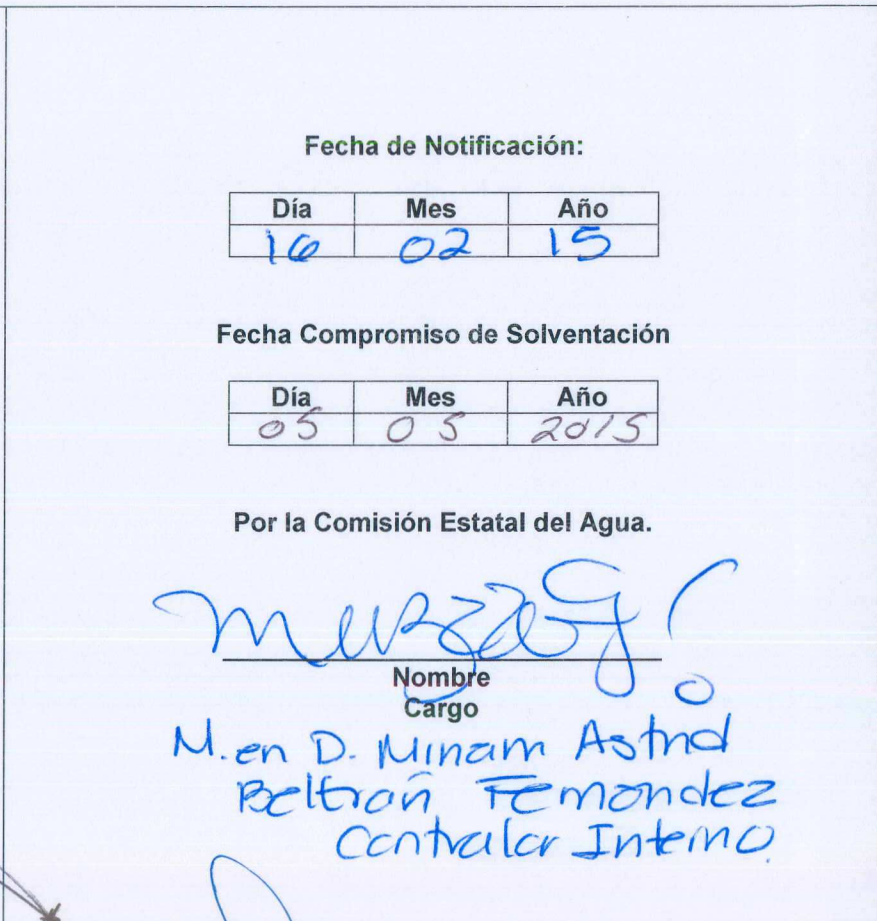 Fecha de Notificación:
Día Mes Año
16 02 15
Fecha Compromiso de Solventación
Día Mes Año
05 05 2015
Por la Comisión Estatal del Agua.
Nombre
Cargo
M. en D. Miriam Astrid
Beltrán Fernández
Contralor Interno